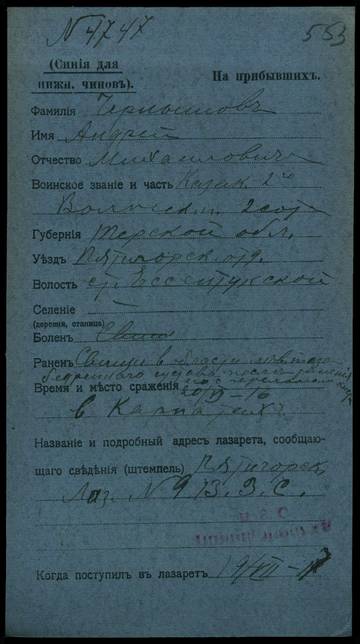 N 4747 553
(Синія для
нижн. чиновъ).
На прибывшихъ.
Фамилія
Имя Андрей
Отчество Михаиловичъ
Воинское званіе и часть Казак. 2го
Волгск. п. 2 сот.
Губернія Терской обл.
Уѣздъ Пятигорск. отд.
Волость ст. Ессентукской
Селеніе
(деревня, станица)
Боленъ
Раненъ Свищи в области
бедреннаго сустава после ранения
Время и мѣсто сраженія
в Карпатахъ
Названіе и подробный адресъ лазарета, сообщаю-
щаго свѣдѣнія (штемпель) Пятигорск,
Лаз. N 9 В. З. С.
Когда поступилъ въ лазаретъ 19/VII-17